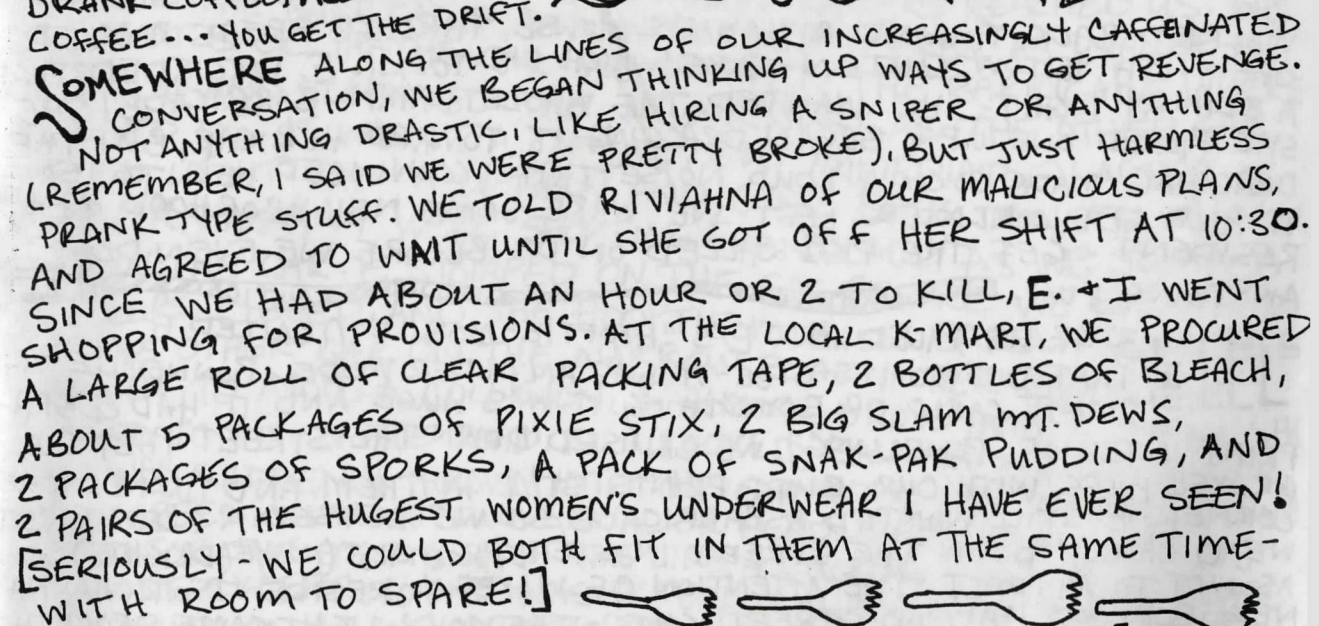 COFFEE... YOU GET THE DRIFT.
SOMEWHERE ALONG THE LINES OF OUR INCREASINGLY CAFFEINATED
CONVERSATION, WE BEGAN THINKING UP WAYS TO GET REVENGE.
NOT ANYTHING DRASTIC, LIKE HIRING A SNIPER OR ANYTHING
(REMEMBER, I SAID WE WERE PRETTY BROKE), BUT JUST HARMLESS
PRANK TYPE STUFF. WE TOLD RIVIAHNA OF OUR MALICIOUS PLANS,
AND AGREED TO WAIT UNTIL SHE GOT OFF HER SHIFT AT 10:30.
SINCE WE HAD ABOUT AN HOUR OR 2 TO KILL, E. + I WENT
SHOPPING FOR PROVISIONS. AT THE LOCAL K-MART, WE PROCURED
A LARGE ROLL OF CLEAR PACKING TAPE, 2 BOTTLES OF BLEACH,
ABOUT 5 PACKAGES OF PIXIE STIX, 2 BIG SLAM MT. DEWS,
2 PACKAGES OF SPORKS, A PACK OF SNAK-PAK PUDDING, AND
2 PAIRS OF THE HUGEST WOMEN'S UNDERWEAR I HAVE EVER SEEN!
[SERIOUSLY - WE COULD BOTH FIT IN THEM AT THE SAME TIME-
WITH ROOM TO SPARE!]